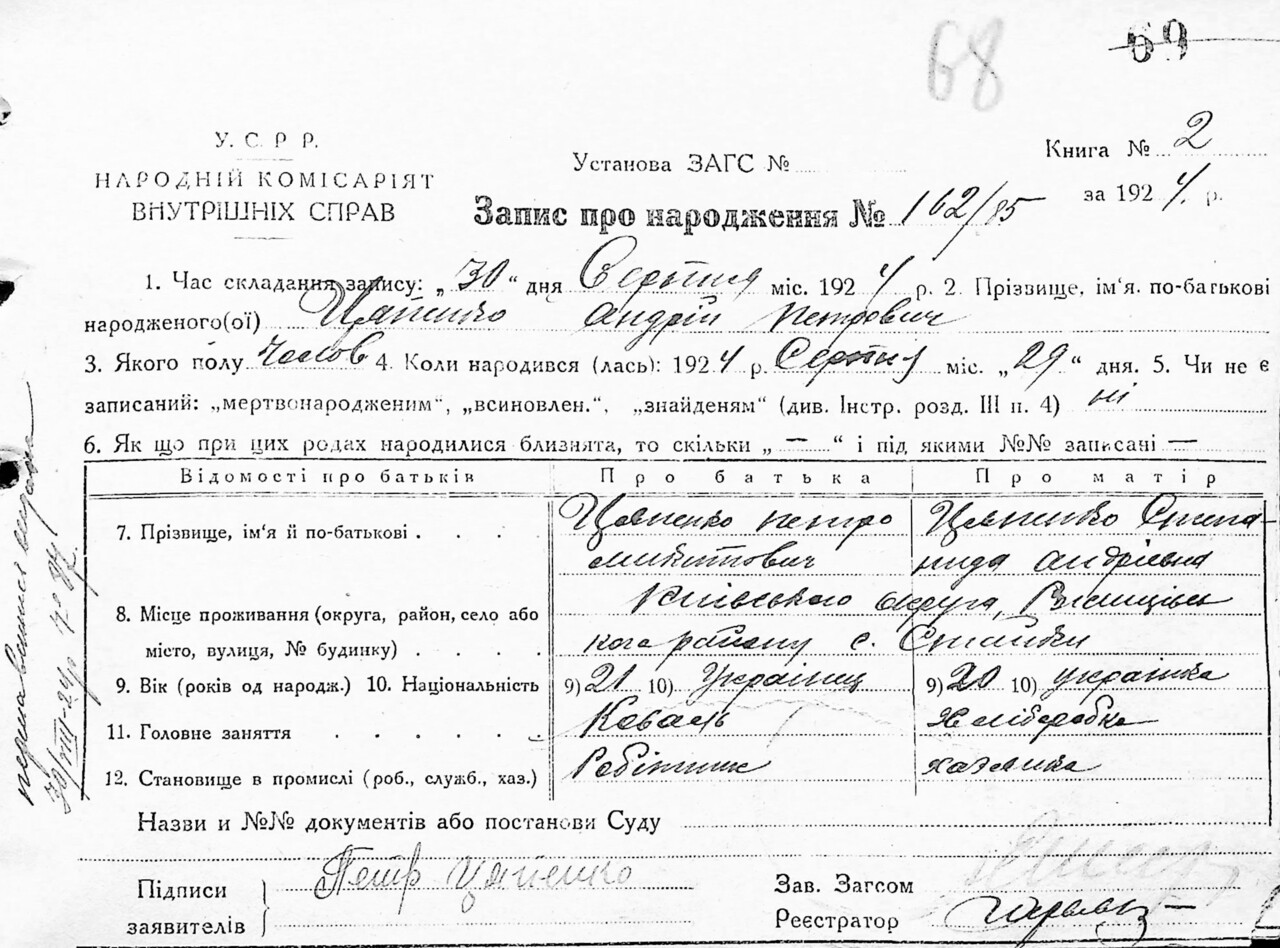 68
69
У. С. Р Р.
НАРОДНІЙ КОМІСАРІЯТ
ВНУТРІШНІХ СПРАВ
Установа ЗАГС №
Книга № 2
за 1924 р.
Запис про народження № 162/85
1. Час складання запису: „30“ дня Серпня міс. 1924 р. 2. Прізвище, ім'я. по-батькові
народженого(ої) Цапенко Андрій Петрович
3. Якого полу Чолов 4. Коли народився (лась): 1924 р. Серпня міс. „29“ дня. 5. Чи не є
записаний: „мертвонародженим“, „всиновлен.“, „знайденям“ (див. Інстр. розд. III п. 4) ні
6. Як що при цих родах народилися близнята, то скільки „—“ і під якими №№ записані —
Відомості про батьків Про батька Про матір
7. Прізвище, ім'я й по-батькові . . . . Цапенко Петро Цапенко Степа-
Микитович нида Андріївна
8. Місце проживання (округа, район, село або Київського округа,
місто, вулиця, № будинку) . . . . кого району с. Стайки
9. Вік (років од народж.) 10. Національність 9) 21 10) Українец 9) 20 10) українка
11. Головне заняття . . . . . . Коваль Хліборобка
12. Становище в промислі (роб., служб., хаз.) Робітник хазяйка
Назви и №№ документів або постанови Суду
Підписи
заявителів
Петр Цапенко
Зав. Загсом
Реєстратор
30/VIII-24р.